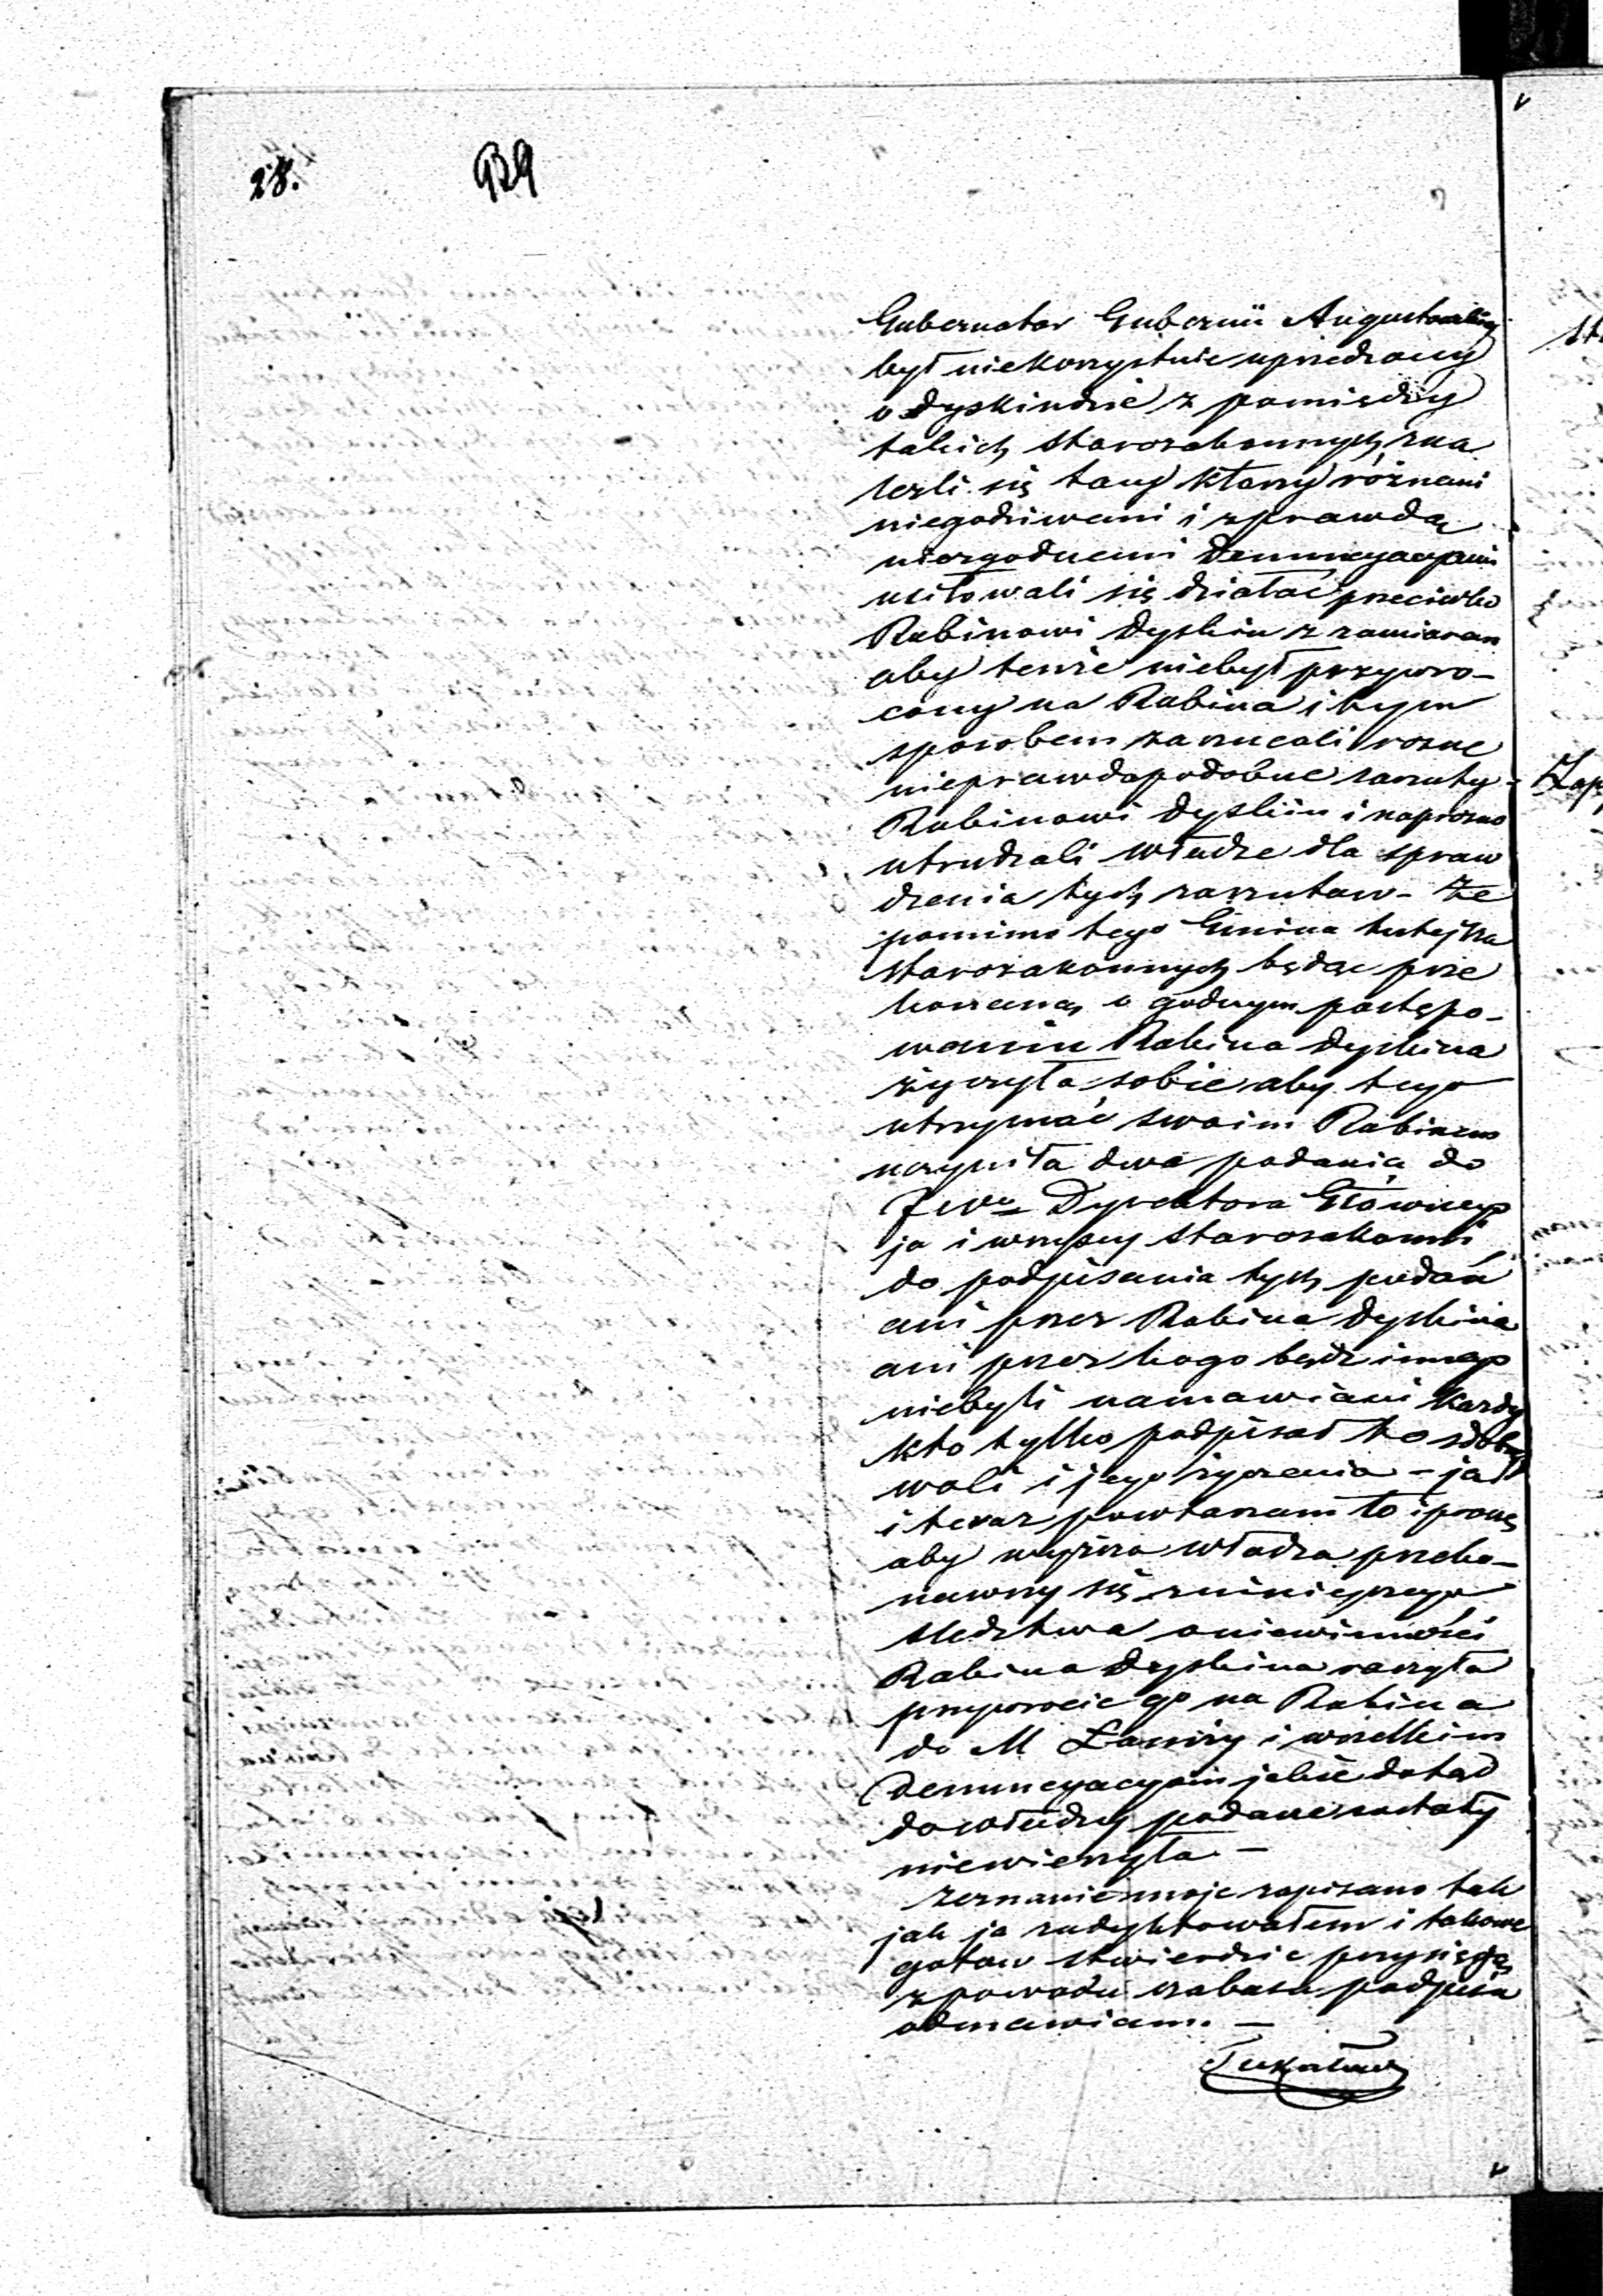 28. 939
Gubernator Gubernii Augustowskiej
był niekorzystnie uprzedzony
o Dyskinie z pomiędzy
takich starozakonnych zna
lezli się tacy którzy różnemi
niegodziwemi i z prawdą
niezgodnemi Denuncyacyami
usiłowali się działać przeciwko
Rabinowi Dyskin z zamiarem
aby tenże niebył przywro-
cony na Rabina i tym
sposobem zarzucali rozne
nieprawdopodobne zarzuty
Rabinowi Dyskin i naprozno
utrudzali władze dla spraw
dzenia tych zarzutow - że
pomimo tego Gmina tutejsza
starozakonnych będąc prze
konaną o godnym postępo-
waniu Rabina Dyskina
życzyła sobie aby tego
utrzymać swoim Rabinem
uczyniła dwa podania do
JWo Dyrektora Głównego
ja i wszyscy starozakonni
do podpisania tych podań
ani przez Rabina Dyskina
ani przez kogo bądź innego
niebyli namawiani każdy
kto tylko podpisał to z dobrej
woli i jego życzenia - ja
i teraz powtarzam to i proszę
aby wyższa władza przeko-
nawszy się z niniejszego
sledztwa o niewinności
Rabina Dyskina raczyła
przywrocic go na Rabina
do M Łomży i wszelkim
Denuncyacyom jakie dotąd
do władzy podane zostały
niewierzyła -
Zeznanie moje zapisano tak
jak ja zadyktowałem i takowe
gotow stwierdzic przysięgą
z powodu szabasu podpisu
odmawiam. -
Zap